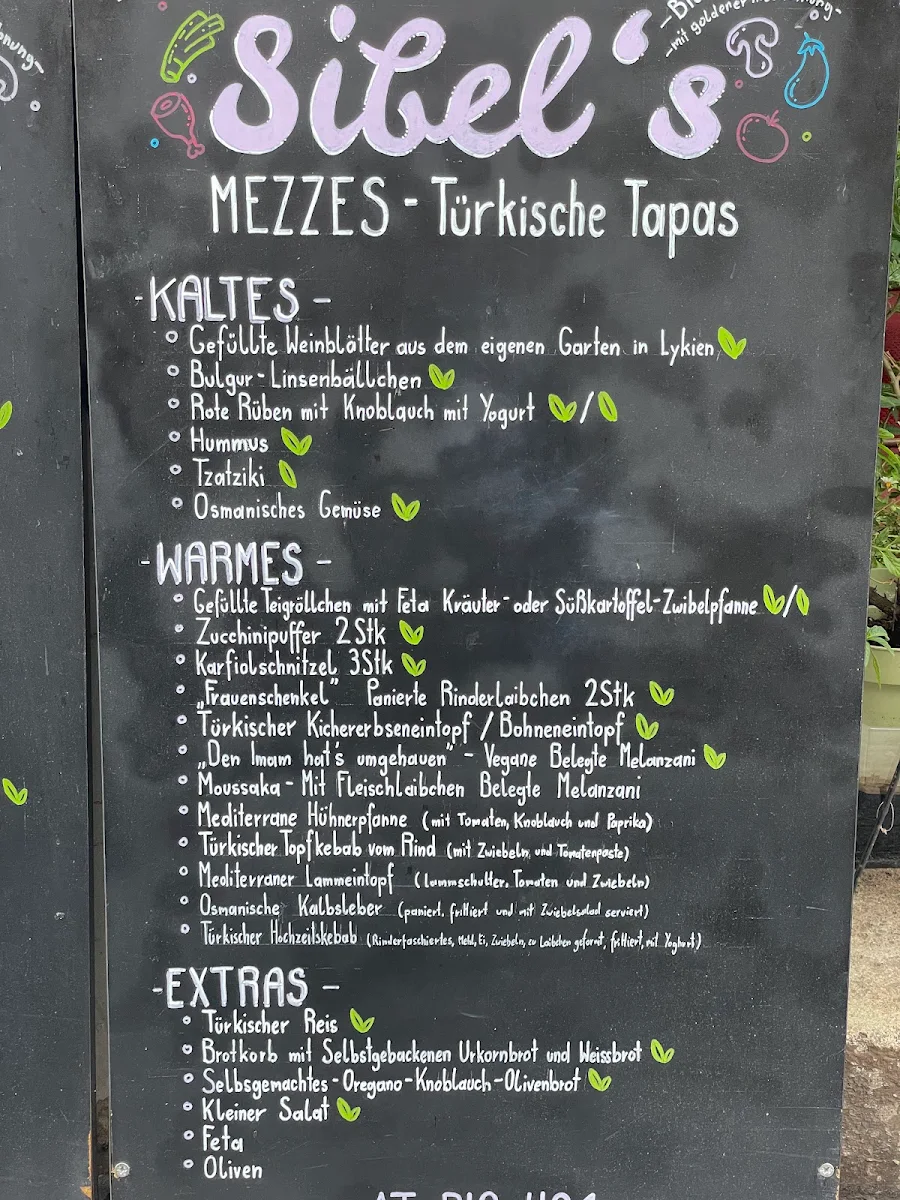 -mit goldener
Sibel's
MEZZES - Türkische Tapas
- KALTES -
Gefüllte Weinblätter aus dem eigenen Garten in Lykien
Bulgur - Linsenbällchen
Rote Rüben mit Knoblauch mit Yogurt /
Hummus
Tzatziki
Osmanisches Gemüse
- WARMES -
Gefüllte Teigröllchen mit Feta Kräuter- oder Süßkartoffel-Zwibelpfanne /
Zucchinipuffer 2 Stk
Karfiolschnitzel 3Stk
„Frauenschenkel" Panierte Rinderlaibchen 2Stk
Türkischer Kichererbseneintopf / Bohneneintopf
„Den Imam hat's umgehauen" - Vegane Belegte Melanzani
Moussaka - Mit Fleischlaibchen Belegte Melanzani
Mediterrane Hühnerpfanne (mit Tomaten, Knoblauch und Paprika)
Türkischer Topfkebab vom Rind (mit Zwiebeln, und Tomatenpaste)
Mediterraner Lammeintopf (Lammschulter, Tomaten und Zwiebeln)
Osmanische Kalbsleber (paniert, frittiert und mit Zwiebelsalad serviert)
Türkischer Hochzeitskebab (Rinderfaschiertes, Mehl, Ei, Zwiebeln, zu Laibchen geformt, frittiert, mit Yoghurt)
- EXTRAS -
Türkischer Reis
Brotkorb mit Selbstgebackenen Urkornbrot und Weissbrot
Selbsgemachtes - Oregano - Knoblauch - Olivenbrot
Kleiner Salat
Feta
Oliven